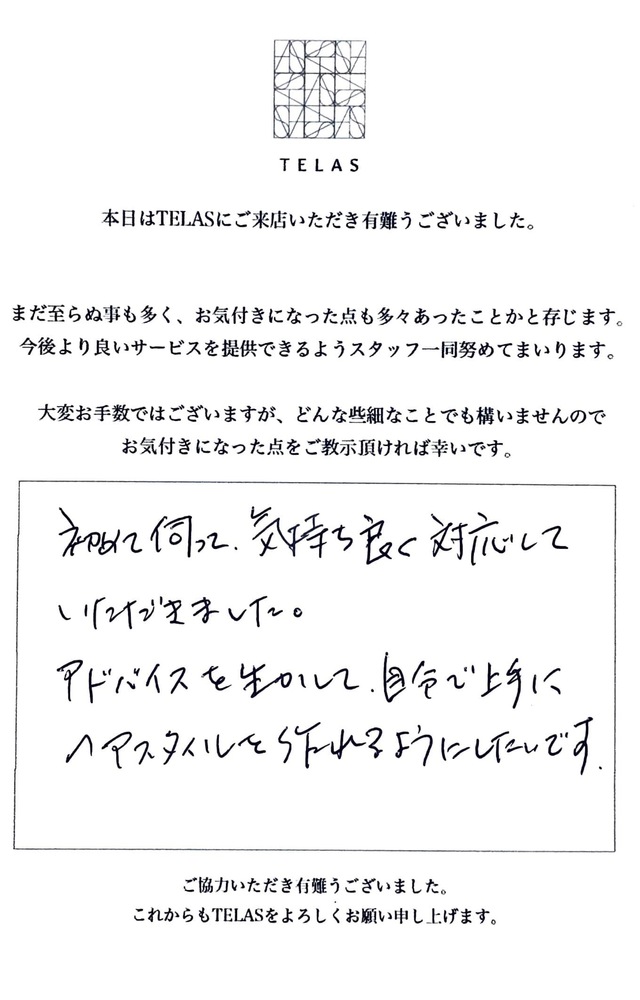 TELAS
本日はTELASにご来店いただき有難うございました。
まだ至らぬ事も多く、お気付きになった点も多々あったことかと存じます。
今後より良いサービスを提供できるようスタッフ一同努めてまいります。
大変お手数ではございますが、どんな些細なことでも構いませんので
お気付きになった点をご教示頂ければ幸いです。
初めて伺って、気持ち良く対応して
いただきました。
アドバイスを生かして、自分で上手に
ヘアスタイルを作れるようにしたいです.
ご協力いただき有難うございました。
これからもTELASをよろしくお願い申し上げます。